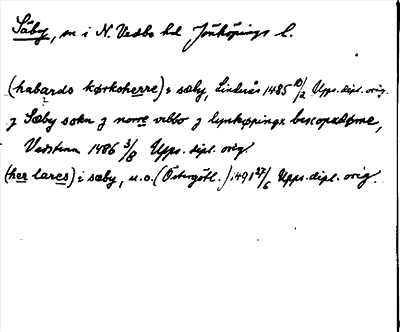 Säby, sn i N. Vedbo hd Jönköpings l.
(habards kørkoherre) i sæby, Linköpings 1485 10/2 Upps. dipl. orig.
j Sæby sokn j norre vebbo j lynkøpings bescopxdøme,
Vadstena 1486 3/8 Upps. dipl. orig.
(her lares) i sæby, u.o. (Östergötl.) 1491 27/6 Upps. dipl. orig.